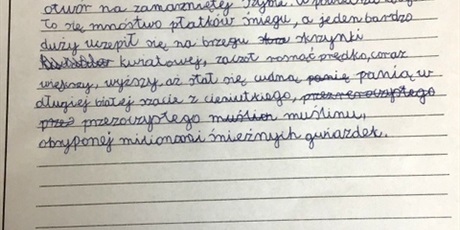 otwór na zamarzniętej szybie. W powietrzu
To się mnóstwo płatków śniegu, a jeden bardzo
duży uczepił się na brzegu skrzynki
kwiatowej, zaczął rosnąć prędko, coraz
większy, wyższy, aż stał się cudną panią w
długiej białej szacie z cieniutkiego,
przezroczystego muślinu,
obsypanej milionami śnieżnych gwiazdek.